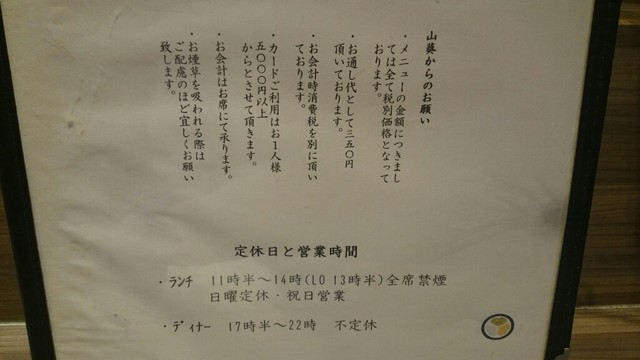 山葵からのお願い
・メニューの金額につきまし
ては全て税別価格となって
おります。
・お通し代として三五〇円
頂いております。
・お会計時消費税を別に頂い
ております。
・カードご利用はお1人様
五〇〇〇円以上
からとさせて頂きます。
・お会計はお席にて承ります。
・お煙草を吸われる際は
ご配慮のほど宜しくお願い
致します。
定休日と営業時間
・ランチ 11時半〜14時(LO 13時半)全席禁煙
日曜定休・祝日営業
・ディナー 17時半〜22時 不定休